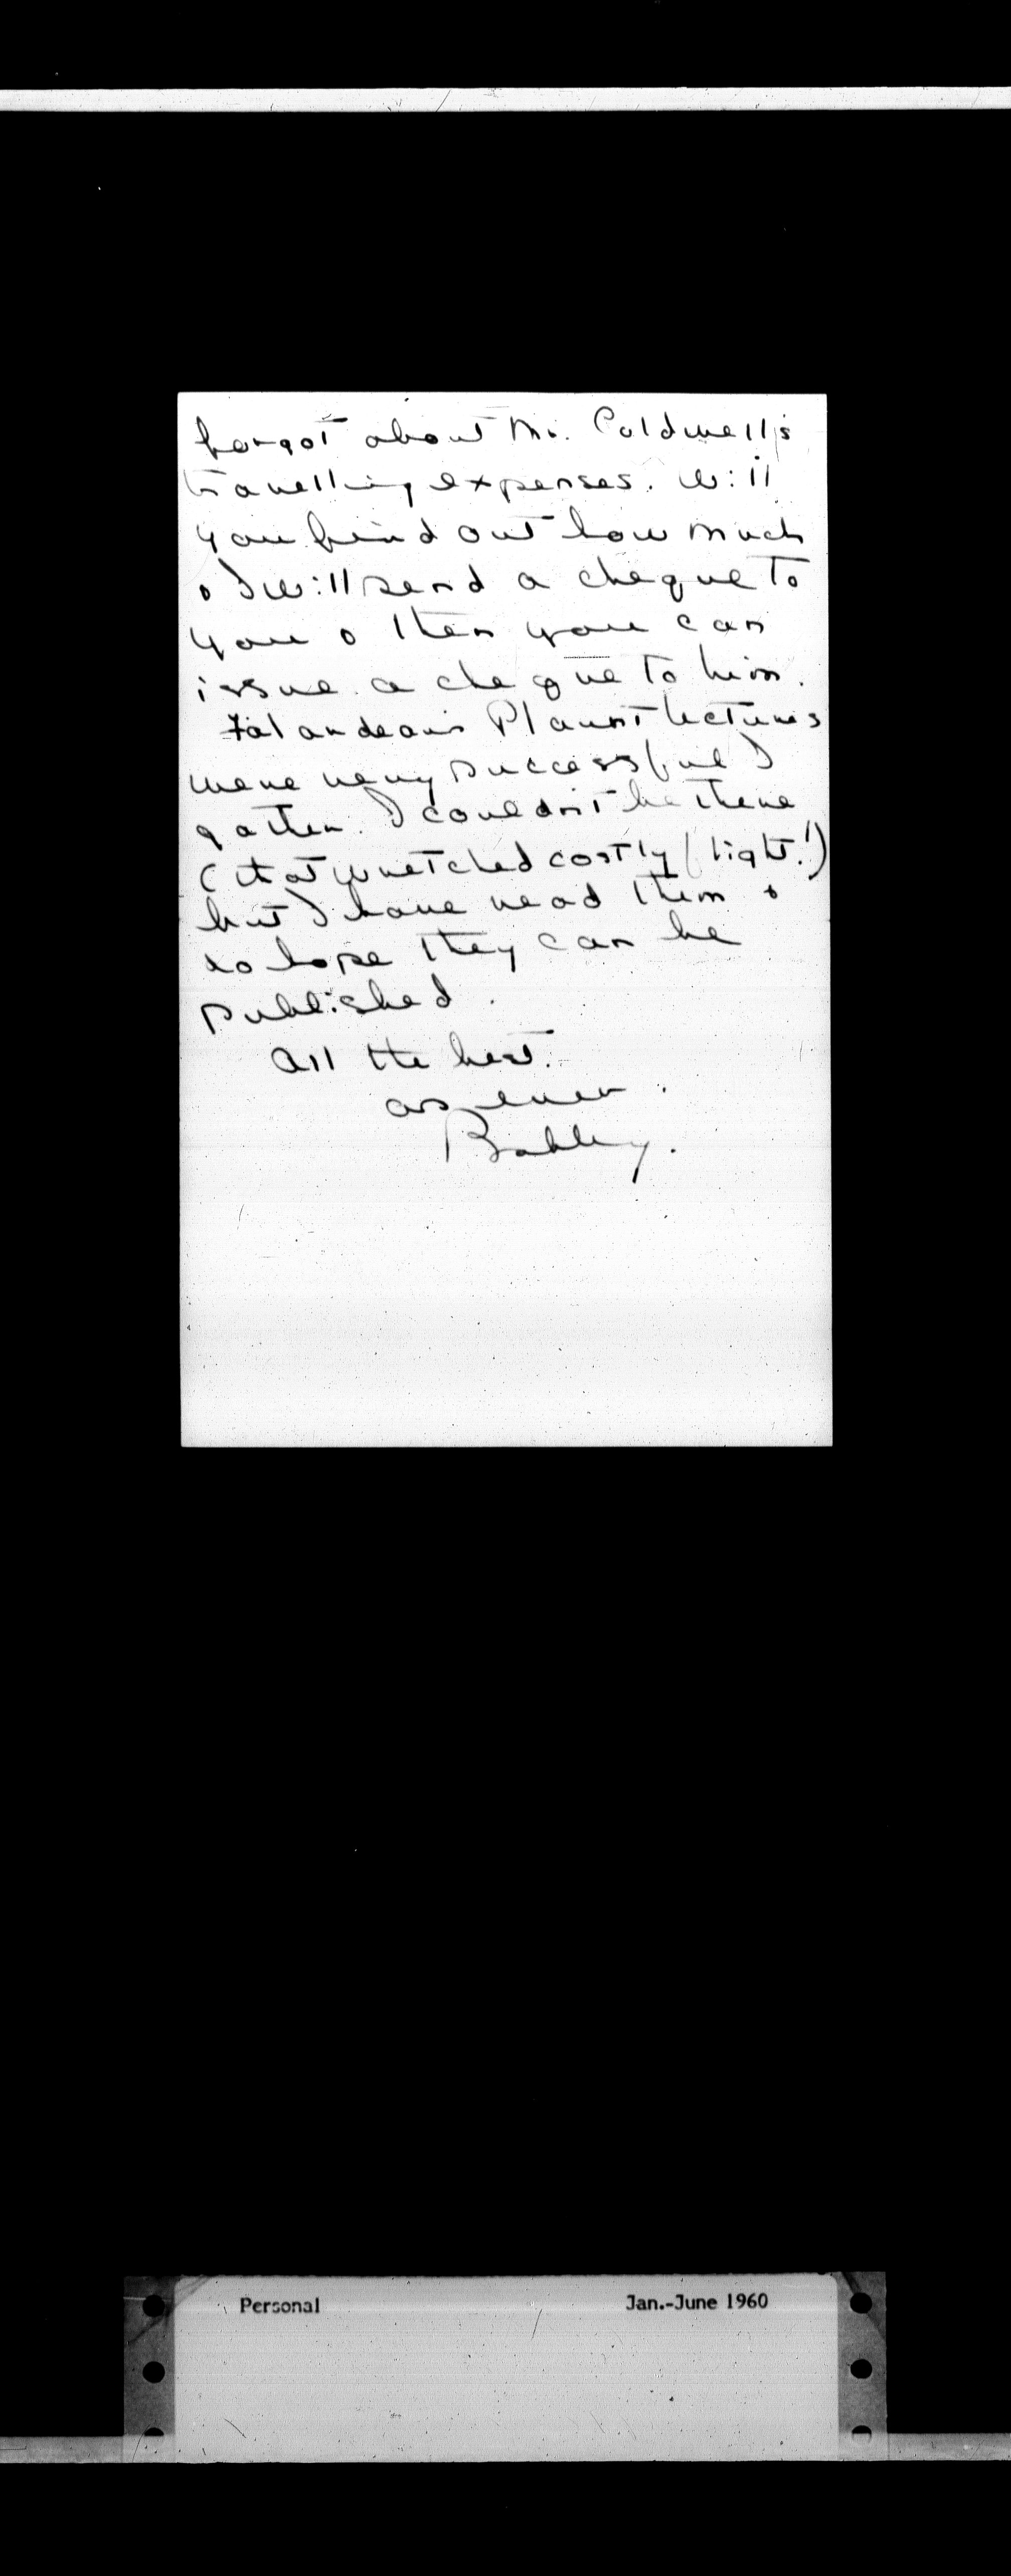 forgot about Mr. Caldwell's
travelling expenses. Will
you find out how much
& I will send a cheque to
you & then you can
issue a cheque to him.
Falardeau's Plaunt lectures
were very successful I
gather. I couldn't be there
(that wretched costly fight!)
but I have read them &
do hope they can be
published.
All the best.
as ever.
Personal Jan.-June 1960